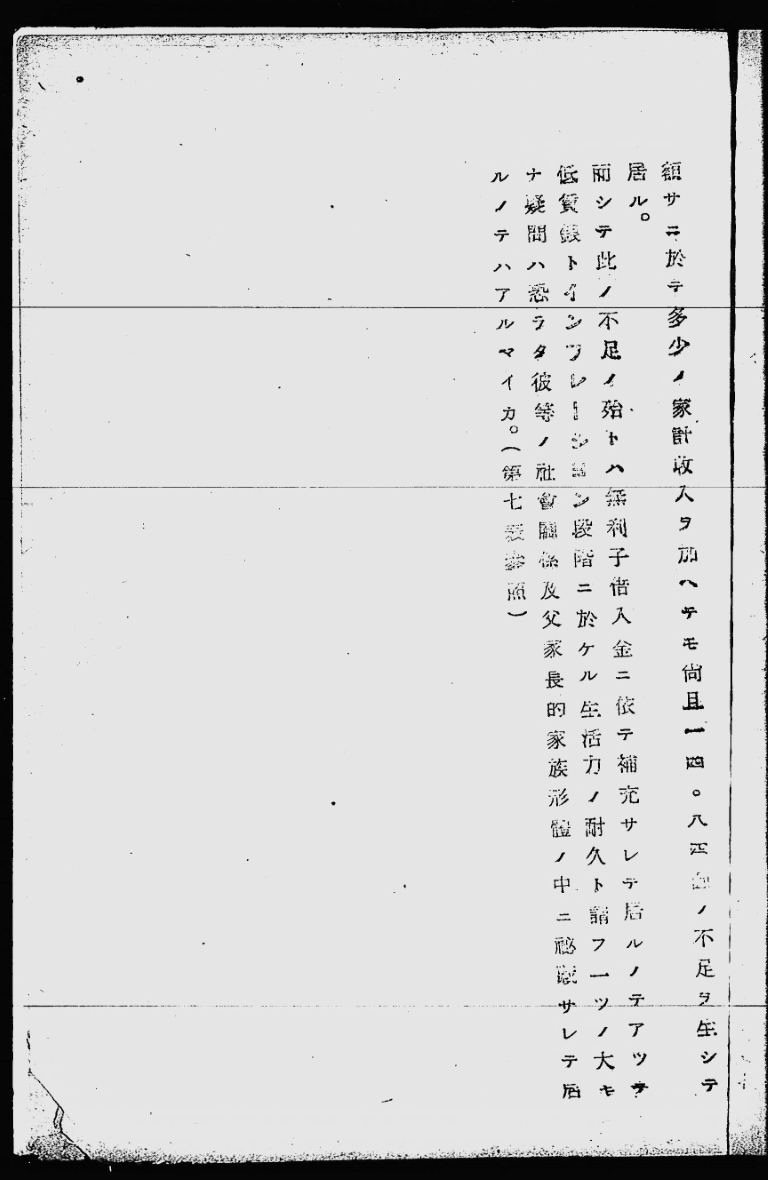 額サニ於テ多少ノ家計收入ヲ加ヘテモ尙且一四。八四ノ不足ヲ生シテ
居ル。
而シテ此ノ不足ノ殆トハ無利子借入金ニ依テ補充サレテ居ルノテアツテ
低賃銀トインフレーシヨン段階ニ於ケル生活力ノ耐久ト謂フ一ツノ大キ
ナ疑問ハ恐ラク彼等ノ社會關係及父家長的家族形體ノ中ニ祕藏サレテ居
ルノテハアルマイカ。(第七表參照)